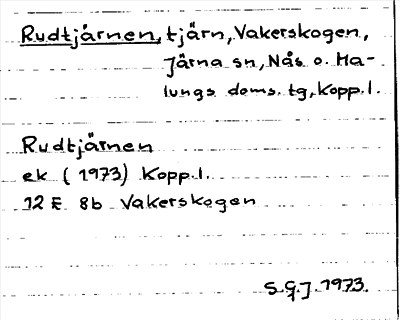 Rudtjärnen, tjärn, Vakerskogen,
Järna sn, Nås o. Ma-
lungs doms. tg, Kopp.l.
Rudtjärnen
ek (1973) Kopp.l.
12 E 8b Vakerskogen
S.G.J. 1973.